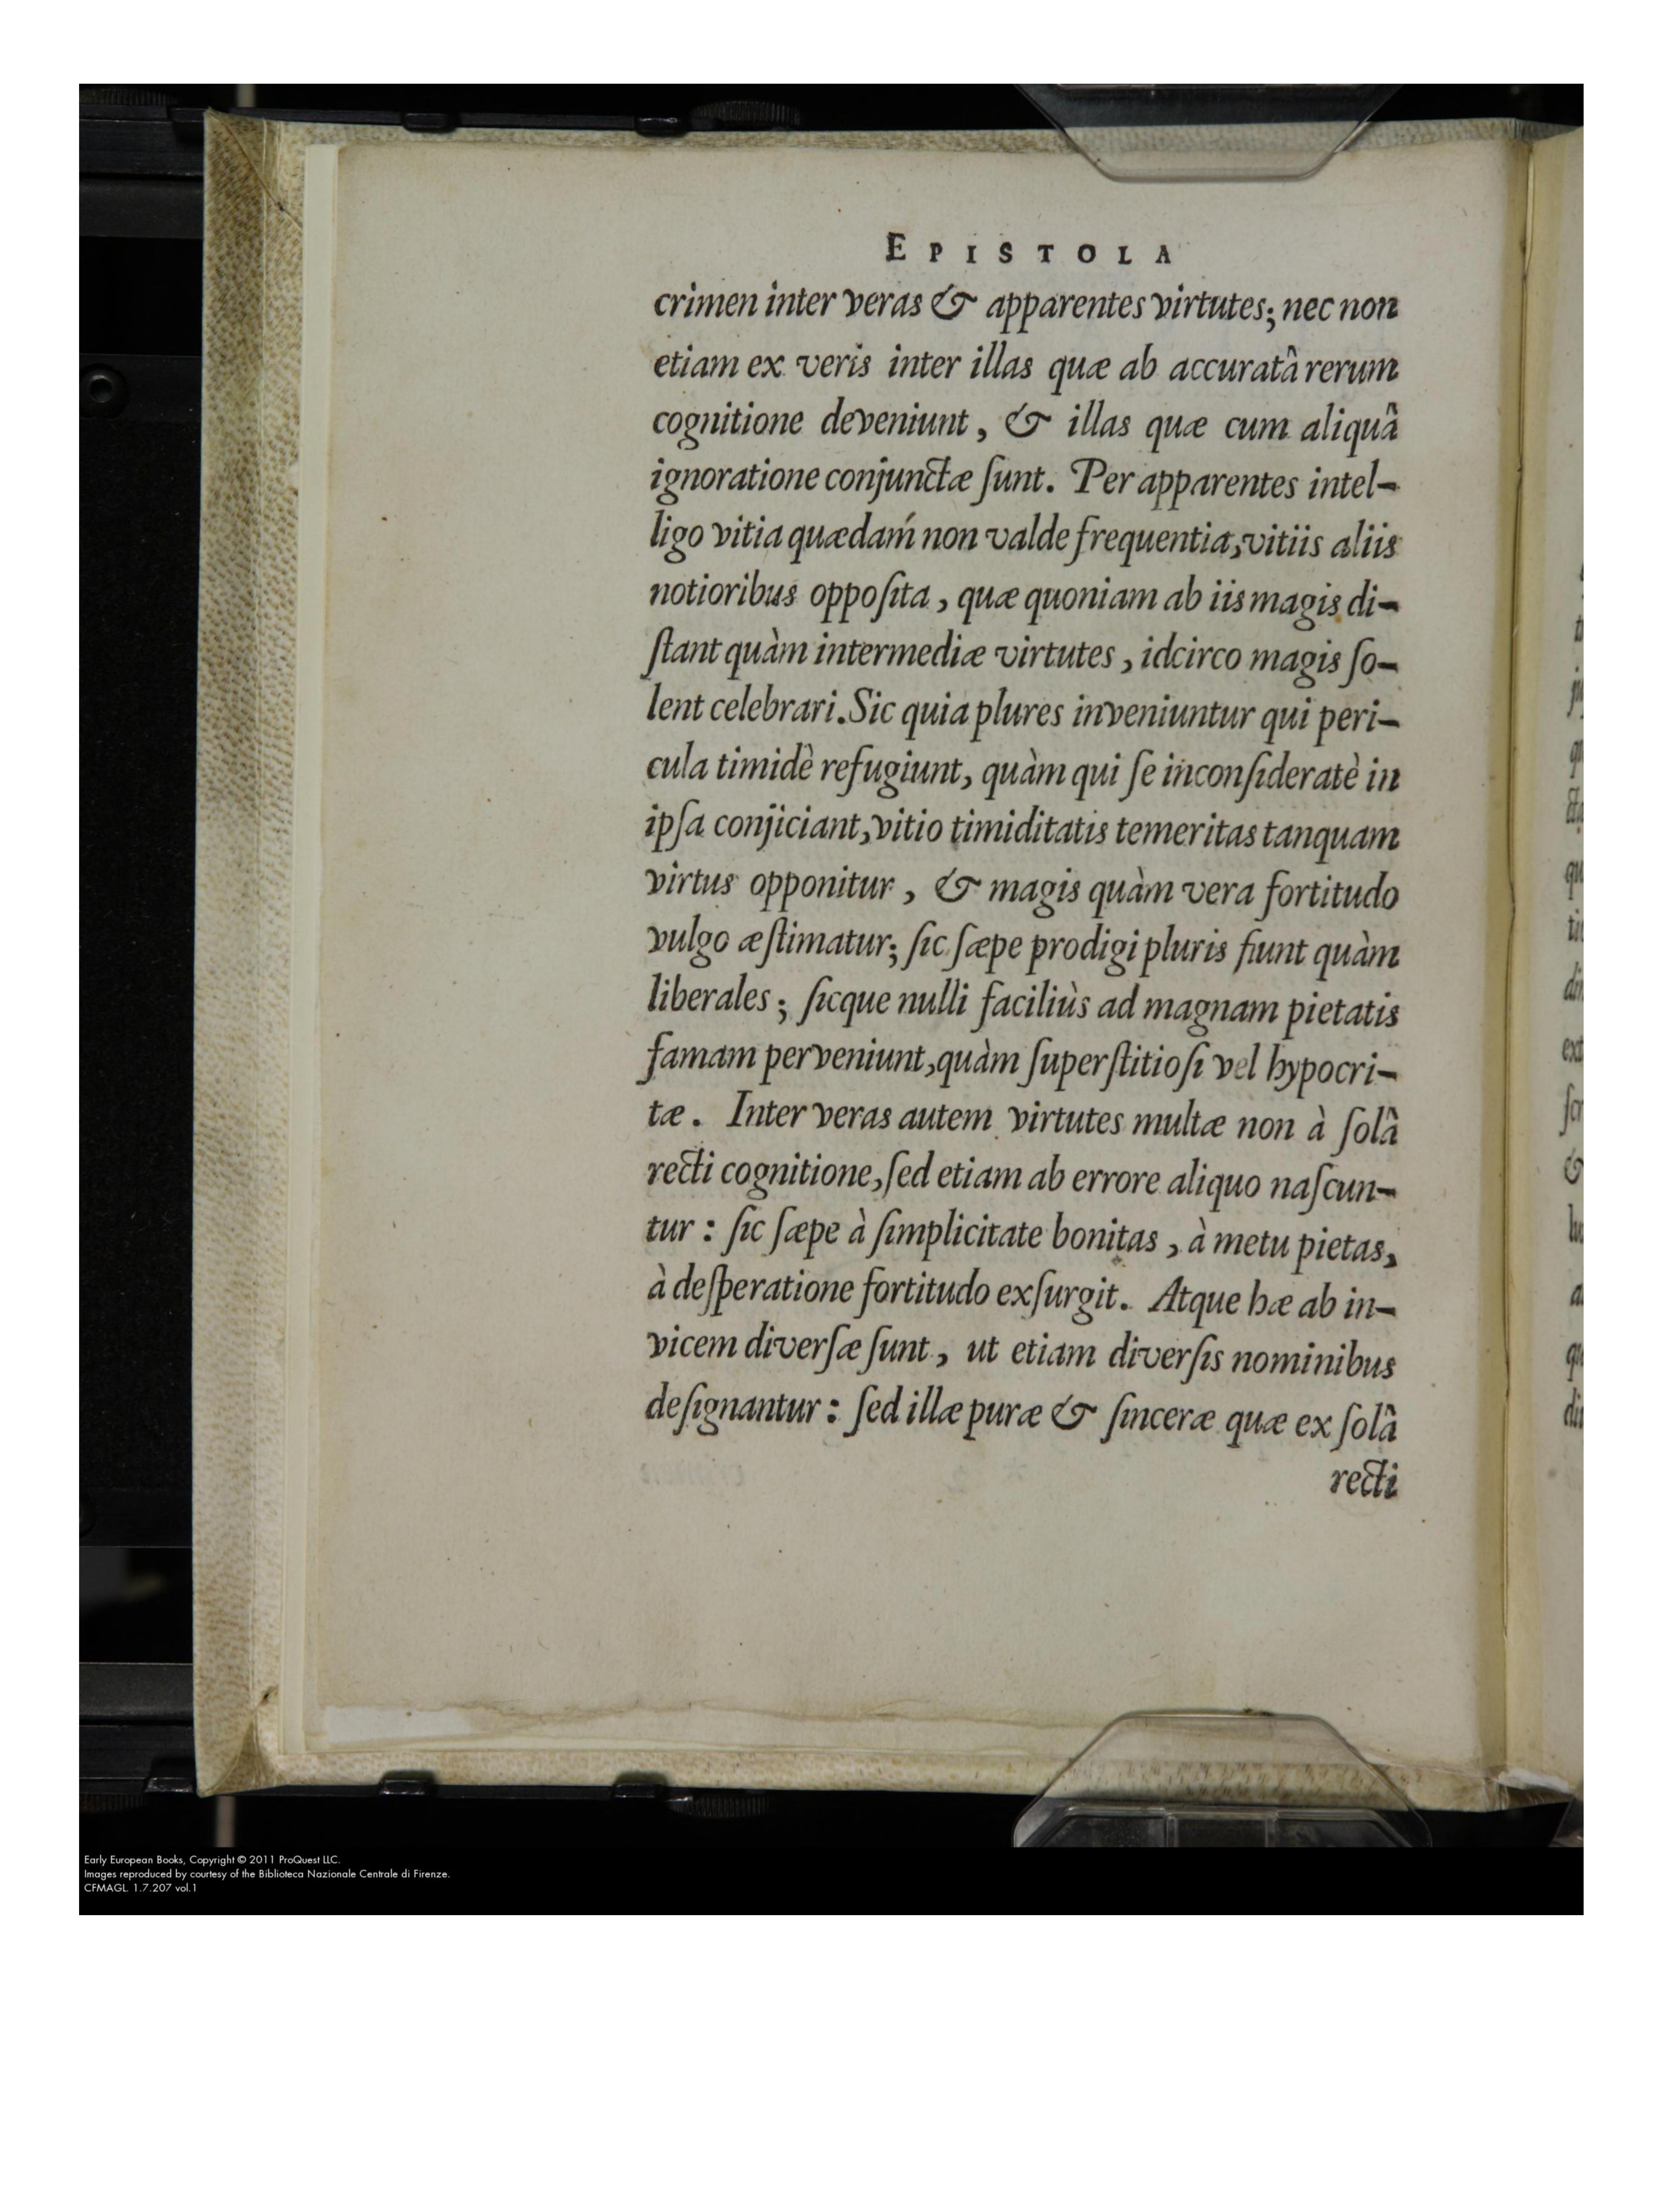 EPISTOLA
crimen inter veras & apparentes virtutes; nec non
etiam ex veris inter illas quæ ab accuratâ rerum
cognitione deveniunt, & illas quæ cum aliquâ
ignoratione conjunctæ ſunt. Per apparentes intel-
ligo vitia quædam non valde frequentia, vitiis aliis
notioribus oppoſita, quæ quoniam ab iis magis di-
ſtant quàm intermediæ virtutes, idcirco magis ſo-
lent celebrari. Sic quia plures inveniuntur qui peri-
cula timidè refugiunt, quàm qui ſe inconſideratè in
ipſa conjiciant, vitio timiditatis temeritas tanquam
virtus opponitur, & magis quàm vera fortitudo
vulgo æſtimatur; ſic ſæpe prodigi pluris fiunt quàm
liberales; ſicque nulli faciliùs ad magnam pietatis
famam perveniunt, quàm ſuperſtitioſi vel hypocri-
tæ. Inter veras autem virtutes multæ non à ſolâ
recti cognitione, ſed etiam ab errore aliquo naſcun-
tur: ſic ſæpe à ſimplicitate bonitas, à metu pietas,
à deſperatione fortitudo exſurgit. Atque hæ ab in-
vicem diverſæ ſunt, ut etiam diverſis nominibus
deſignantur: ſed illæ puræ & ſinceræ quæ ex ſolâ
recti
Early European Books, Copyright © 2011 ProQuest LLC.
Images reproduced by courtesy of the Biblioteca Nazionale Centrale di Firenze.
CFMAGL. 1.7.207 vol.1